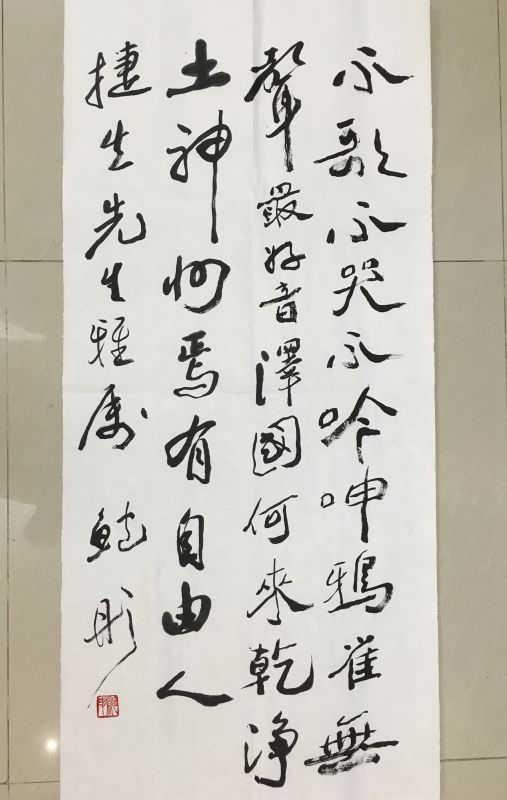 不歌不哭不吟呻鴉雀無
聲最好音澤國何來乾淨
土神州焉有自由人
捷生先生雅属 鮑彤